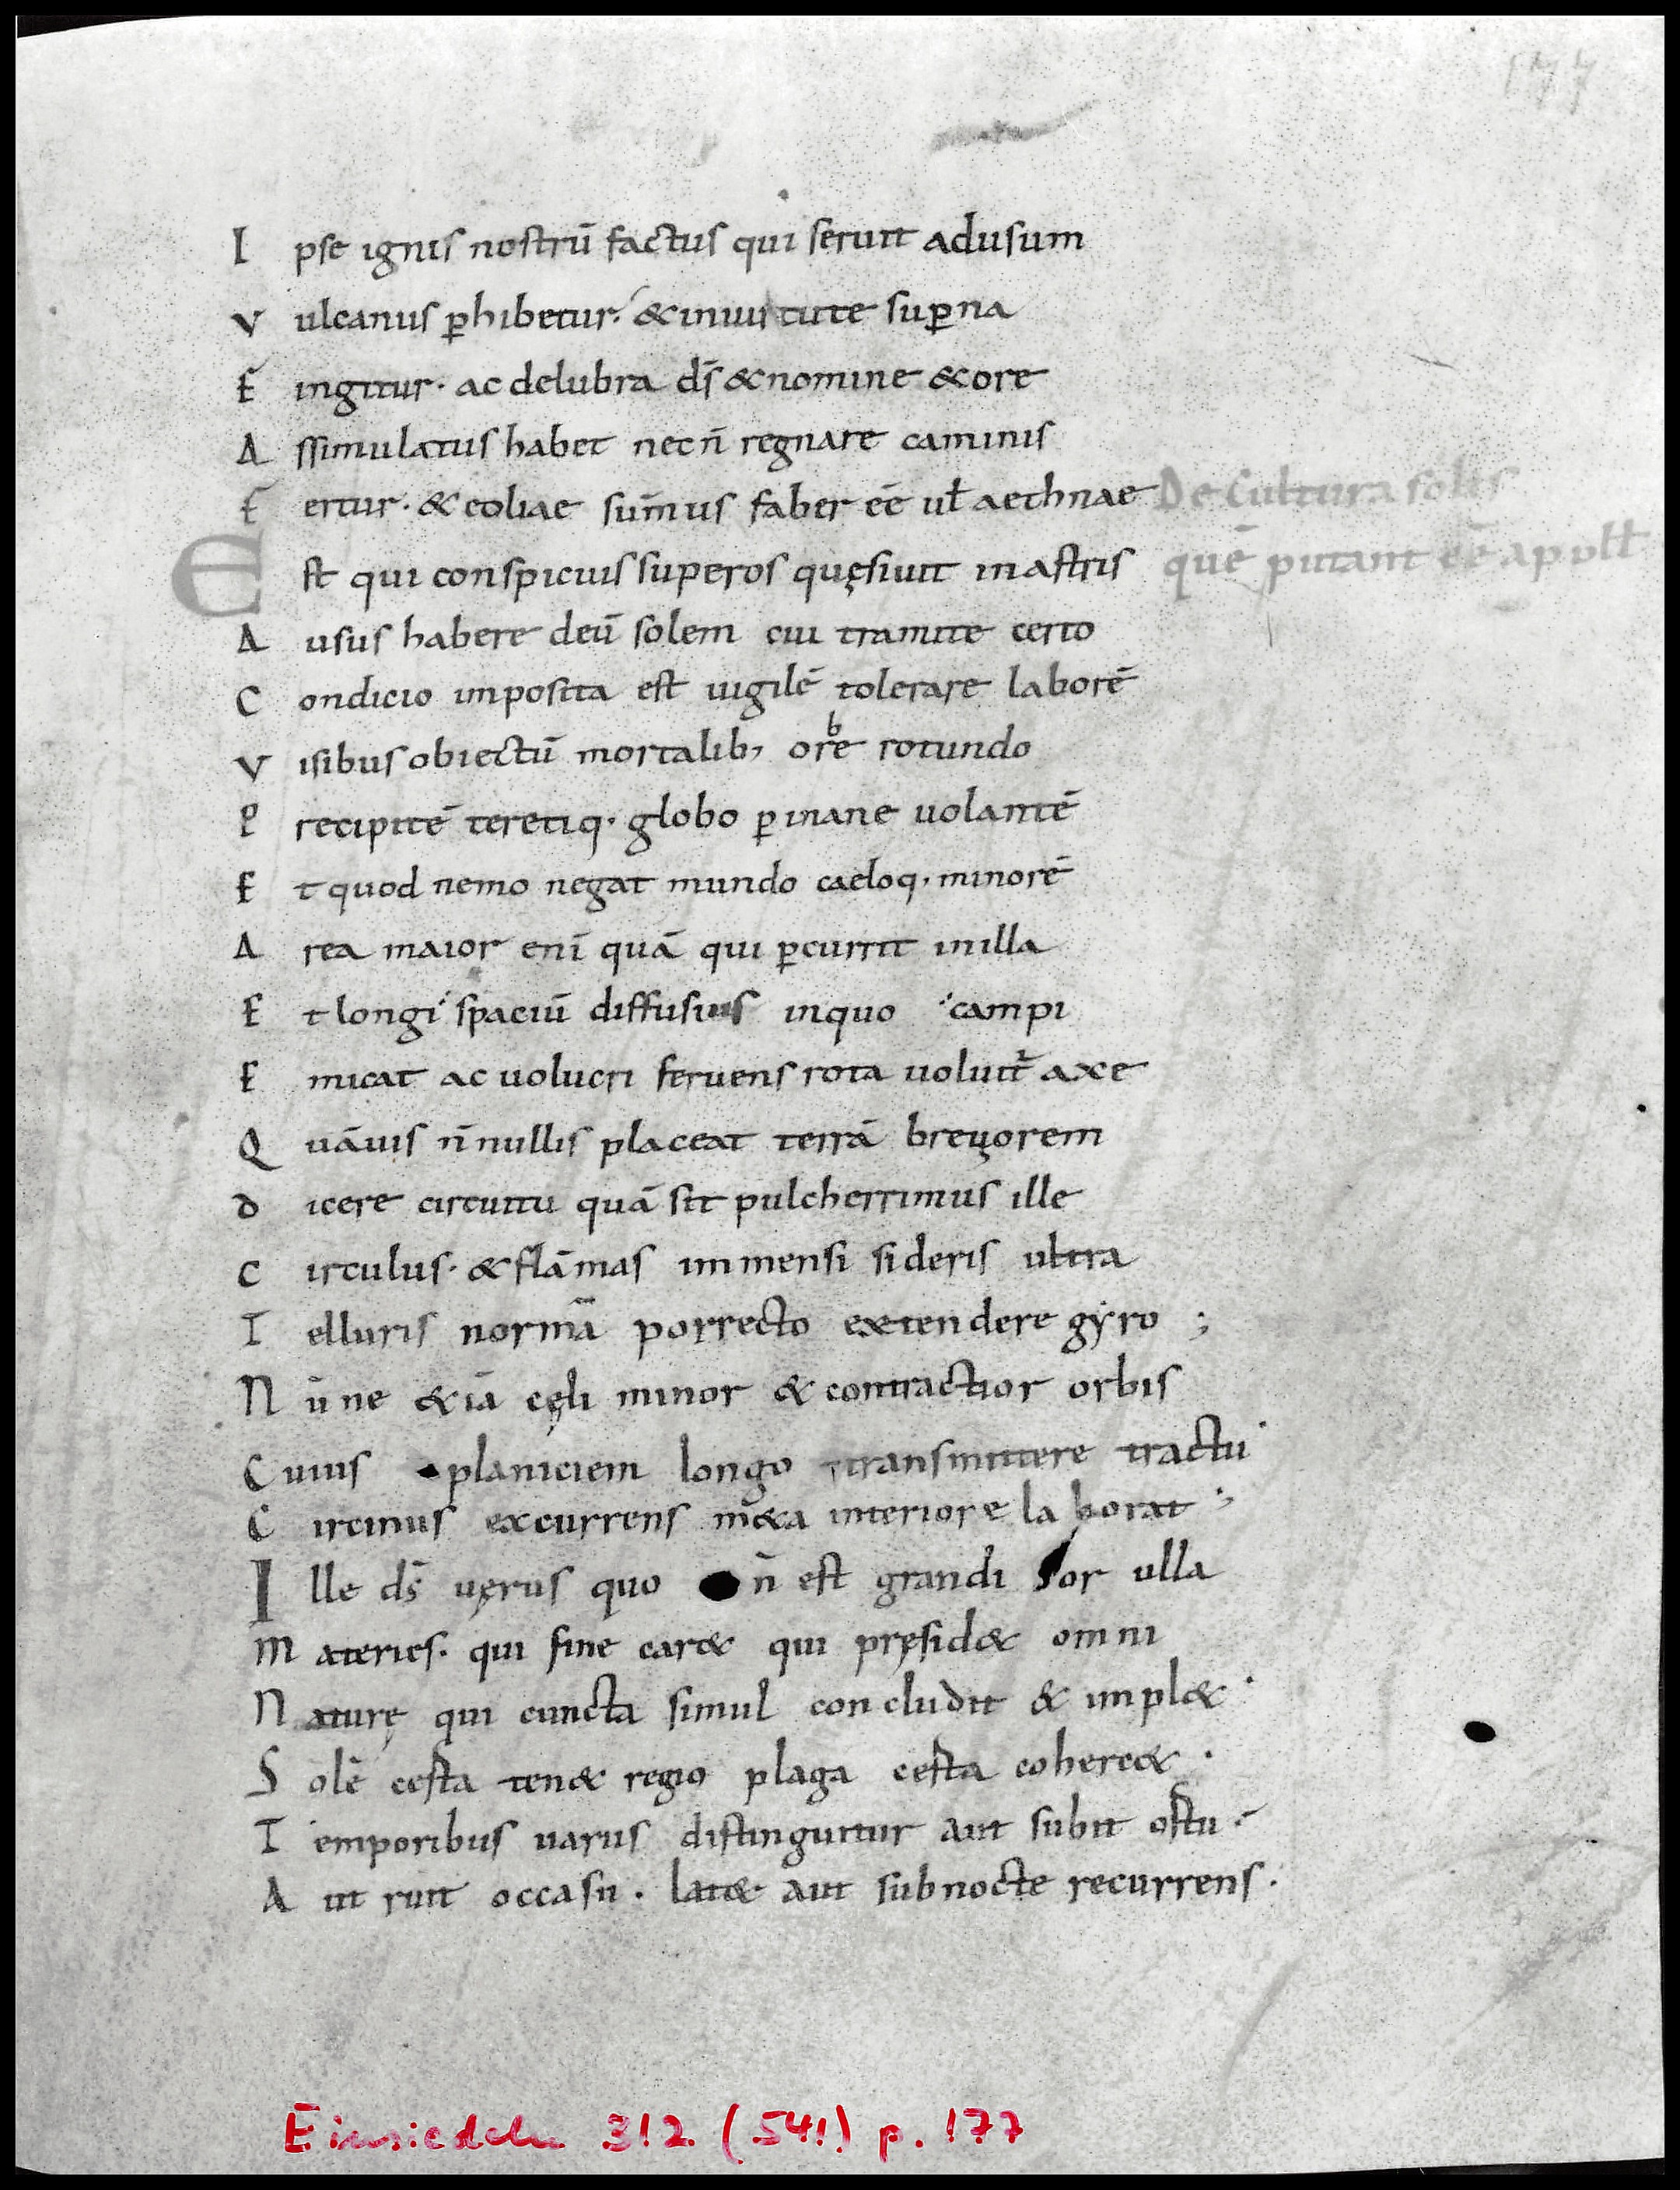 177
I pse ignis nostrū factus qui seruit adusum
V ulcanus ꝑhibetur. &inuirtute suꝑna
F ingitur· ac delubra ds̄ &nomine &ore
A ssimulatus habet nec n̄ regnare caminis
F ertur· &eoliae sum̄us faber eē ul̄ aethnae De Cultura solis
E st qui conspicuis superos quęsiuit inastris quē putant eē apoll̄
A usus habere deū solem cui tramite certo
C ondicio imposita est uigilē tolerare laborē
V isibus obiectū mortalib; orbe rotundo
P recipitē teretiq· globo ꝑ inane uolantē
E t quod nemo negat mundo caeloq· minorē
A rea maior enī quā qui ꝑcurrit inilla
E t longi spaciū diffusius inquo campi
E micat ac uolucri feruens rota uoluit̄ axe
Q uāuis n̄nullis placeat terrā breuiorem
D icere circuitu quā sit pulcherrimus ille
C irculus· &flām̄as immensi sideris ultra
T elluris normā porrecto extendere gyro ;
N ūne &iā cęli minor & contractior orbis
C uius planiciem longo transmittere tractu·
C ircinus excurrens m&a interiore laborat ;
I lle ds̄ uęrus quo n̄ est grandior ulla
M ateries· qui fine car& qui pręsid& omni
N aturę qui cuncta simul concludit & impl&·
S olē certa ten& regio plaga certa coherc&·
T emporibus uarus distinguitur aut subit ortu·
A ut ruit occasu· lat& aut subnocte recurrens·
Einsiedeln 312 (541) p. 177